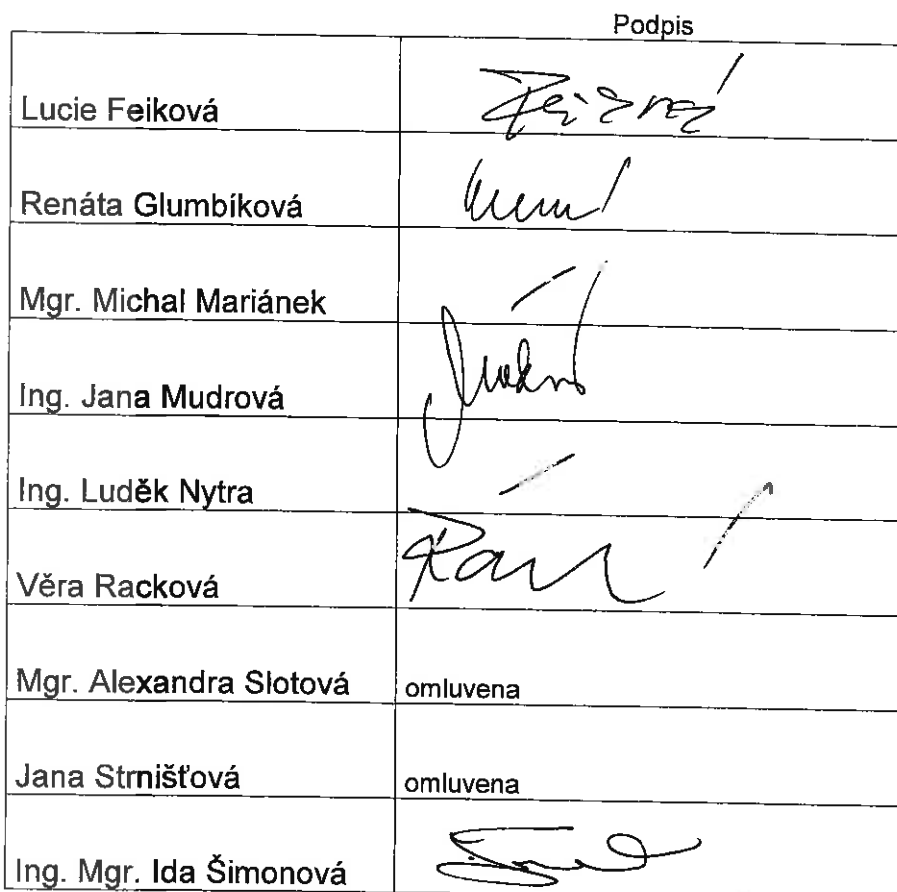 Podpis
Lucie Feiková
Renáta Glumbíková
Mgr. Michal Mariánek
Ing. Jana Mudrová
Ing. Luděk Nytra
Věra Racková
Mgr. Alexandra Slotová omluvena
Jana Strnišťová omluvena
Ing. Mgr. Ida Šimonová